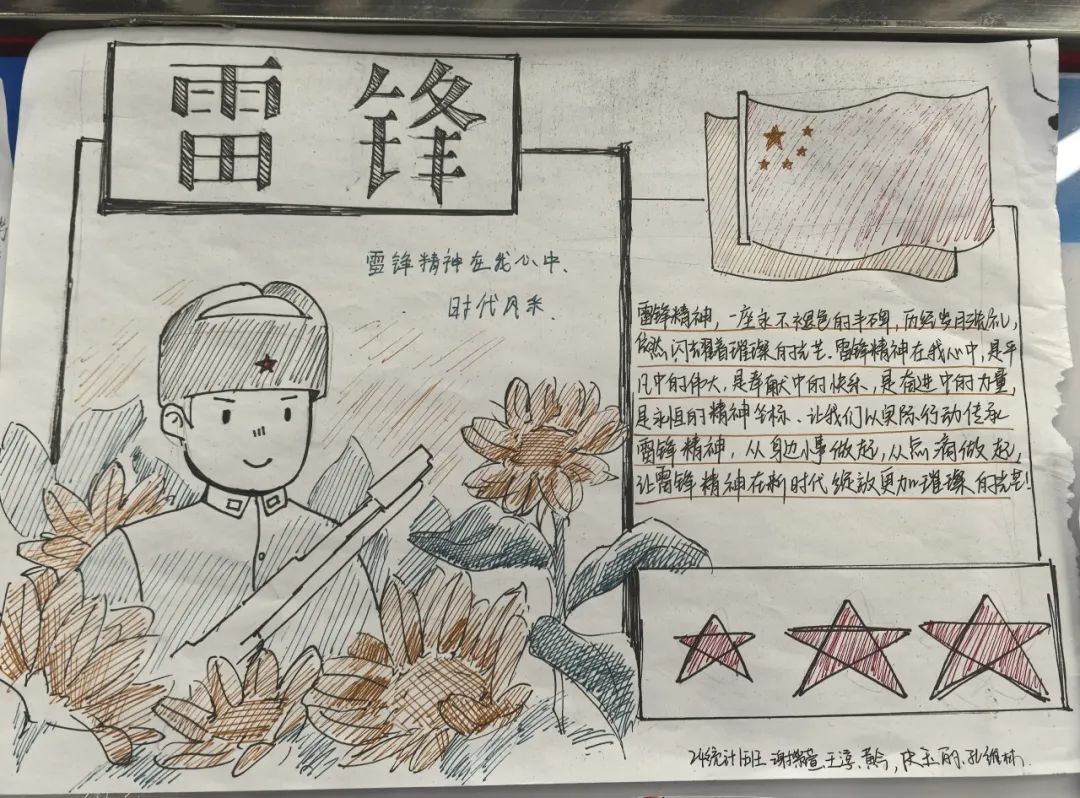 雷锋
雷锋精神在我心中、
时代风采
雷锋精神，一座永不褪色的丰碑，历经岁月洗礼，
依然闪耀着璀璨的光芒、雷锋精神在我心中，是平
凡中的伟大，是奉献中的快乐，是奋进中的力量，
是永恒的精神坐标、让我们以实际行动传承
雷锋精神，从身边小事做起，从点滴做起，
让雷锋精神在新时代绽放更加璀璨的光芒！
24统计1班 王淳、宋玉丽、孔维林